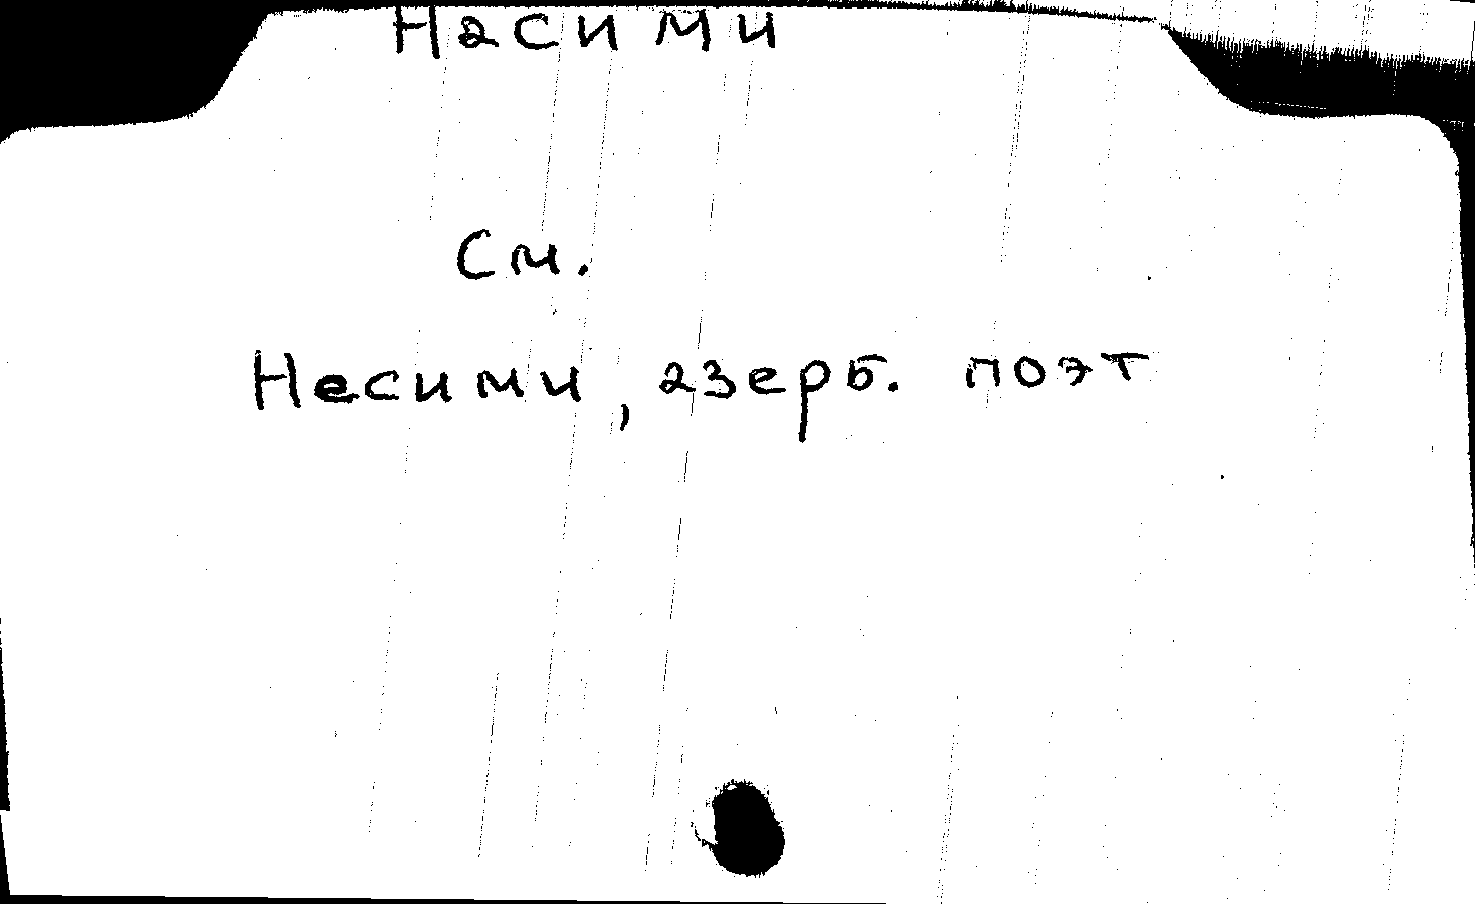 Насими
См.
Несими, азерб. поэт